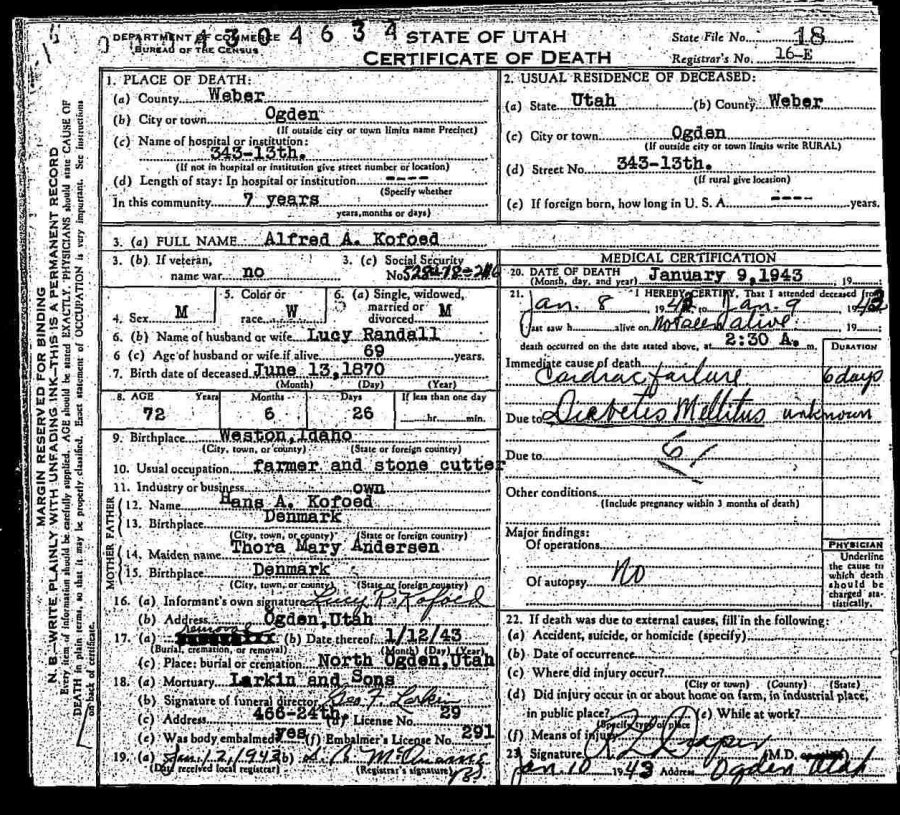 4304634
DEPARTMENT OF COMMERCE
BUREAU OF THE CENSUS
STATE OF UTAH
CERTIFICATE OF DEATH
State File No. 18
Registrar's No. 16-E
MARGIN RESERVED FOR BINDING
N. B.—WRITE PLAINLY WITH UNFADING INK—THIS IS A PERMANENT RECORD
Every item of information should be carefully supplied. AGE should be stated EXACTLY. PHYSICIANS should state CAUSE OF
DEATH in plain terms, so that it may be properly classified. Exact statement of OCCUPATION is very important. See instructions
on back of certificate.
1. PLACE OF DEATH:
(a) County Weber
(b) City or town Ogden
(If outside city or town limits name Precinct)
(c) Name of hospital or institution:
343-13th.
(If not in hospital or institution give street number or location)
(d) Length of stay: In hospital or institution ----
(Specify whether
In this community 7 years
years, months or days)
2. USUAL RESIDENCE OF DECEASED:
(a) State Utah (b) County Weber
(c) City or town Ogden
(If outside city or town limits write RURAL)
(d) Street No. 343-13th.
(If rural give location)
(e) If foreign born, how long in U. S. A. ---- years.
3. (a) FULL NAME Alfred A. Kofoed
3. (b) If veteran,
name war no
3. (c) Social Security
No.
4. Sex M
5. Color or
race W
6. (a) Single, widowed,
married or
divorced M
6. (b) Name of husband or wife Lucy Randall
6 (c) Age of husband or wife if alive 69 years.
7. Birth date of deceased June 13, 1870
(Month) (Day) (Year)
8. AGE Years Months Days If less than one day
72 6 26 hr. min.
9. Birthplace Weston, Idaho
(City, town, or county) (State or foreign country)
10. Usual occupation farmer and stone cutter
11. Industry or business own
FATHER
12. Name Hans A. Kofoed
13. Birthplace Denmark
(City, town, or county) (State or foreign country)
MOTHER
14. Maiden name Thora Mary Andersen
15. Birthplace Denmark
(City, town, or county) (State or foreign country)
16. (a) Informant's own signature Lucy R. Kofoed
(b) Address Ogden, Utah
17. (a) removal (b) Date thereof 1/12/43
(Burial, cremation, or removal) (Month) (Day) (Year)
(c) Place: burial or cremation North Ogden, Utah
18. (a) Mortuary Larkin and Sons
(b) Signature of funeral director Geo F. Larkin
(c) Address 466-24th. (d) License No. 29
(e) Was body embalmed yes (f) Embalmer's License No. 291
19. (a) Jan. 12, 1943 (b)
(Date received local registrar) (Registrar's signature)
MEDICAL CERTIFICATION
20. DATE OF DEATH January 9, 1943
(Month, day, and year) , 19
21. I HEREBY CERTIFY, That I attended deceased from
Jan. 8 1943 to Jan. 9 1943
last saw h alive on Not seen alive 19
death occurred on the date stated above, at 2:30 A. m.
DURATION
Immediate cause of death
Cardiac failure 6 days
Due to Diabetis Mellitus unknown
Due to 61
Other conditions
(Include pregnancy within 3 months of death)
Major findings:
Of operations
Of autopsy No
PHYSICIAN
Underline
the cause to
which death
should be
charged sta-
tistically.
22. If death was due to external causes, fill in the following:
(a) Accident, suicide, or homicide (specify)
(b) Date of occurrence
(c) Where did injury occur?
(City or town) (County) (State)
(d) Did injury occur in or about home on farm, in industrial place,
in public place? (e) While at work?
(Specify type of place
(f) Means of injury
23. Signature R L Draper (M.D.
Jan 10 1943 Address Ogden Utah